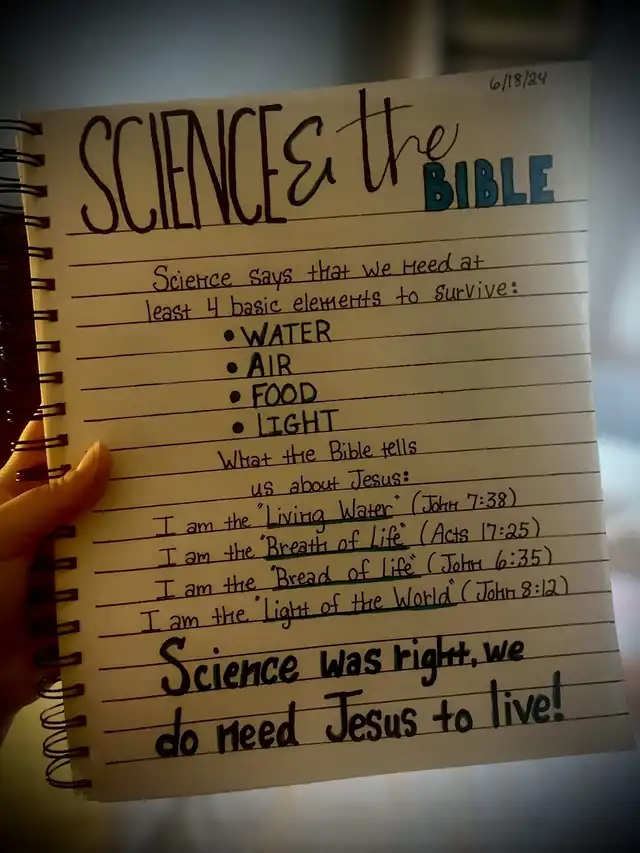 6/18/24
SCIENCE & the
BIBLE
Science says that we need at
least 4 basic elements to survive:
• WATER
• AIR
• FOOD
• LIGHT
What the Bible tells
us about Jesus:
I am the "Living Water" (John 7:38)
I am the "Breath of Life" (Acts 17:25)
I am the "Bread of life" (John 6:35)
I am the "Light of the World" (John 8:12)
Science was right, we
do need Jesus to live!